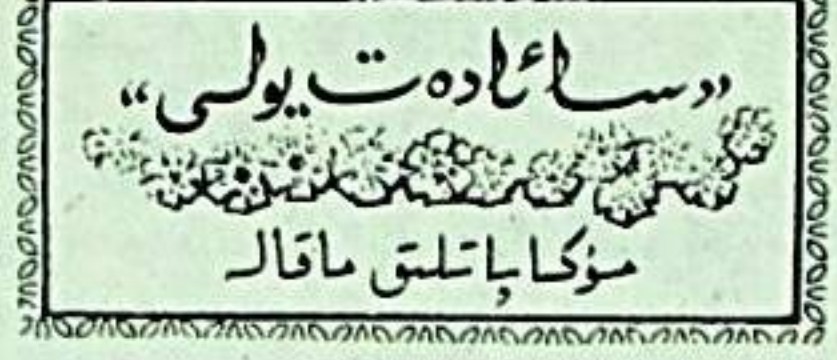 «سائادەت يولى»
مۇكاپاتلىق ماقالە